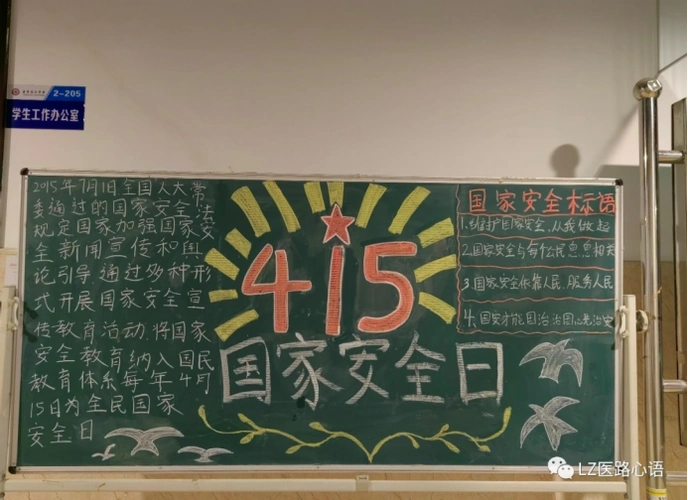 2-205
学生工作办公室
2015年7月1日全国人大常
委通过的国家安全法
规定国家加强国家安
全新闻宣传和舆
论引导通过多种形
式开展国家安全宣
传教育活动.将国家
安全教育纳入国民
教育体系每年4月
15日为全民国家
安全日
415
国家安全日
国家安全标语
1.维护国家安全.从我做起
2.国家安全与每个公民息息相关
3.国家安全依靠人民.服务人民
4.国安才能国治 治国必先治安
LZ医路心语